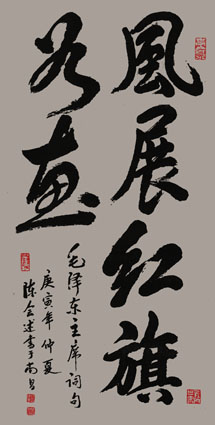 風展红旗
如画
毛泽东主席词句
庚寅年仲夏
陈会述书于南昌